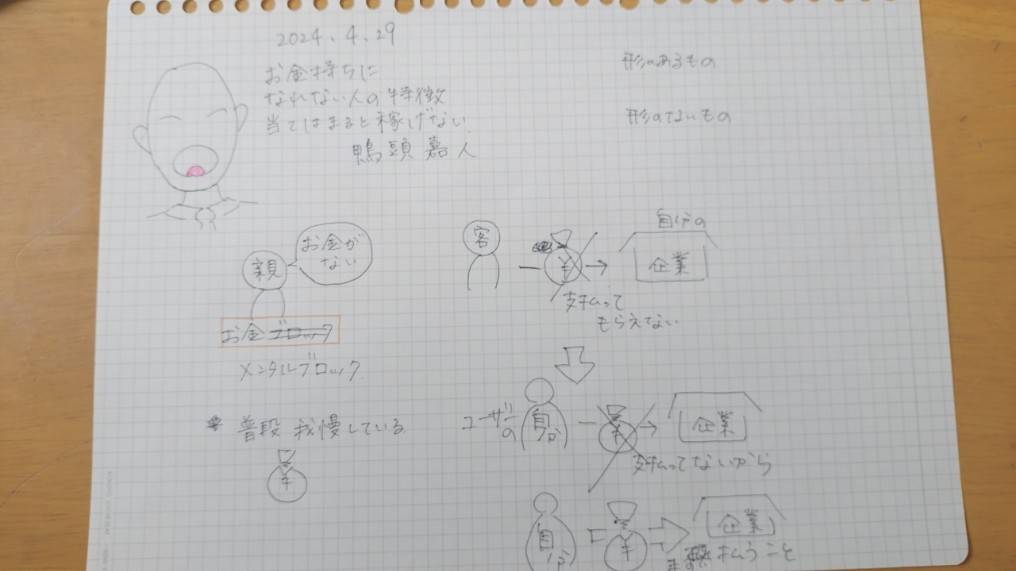 2024.4.29
お金持ちに
なれない人の特徴
当てはまると稼げない
鴨頭嘉人
形のあるもの
形のないもの
親
お金が
ない
お金ブロック
メンタルブロック
* 普段 我慢している
¥
客
¥
自分の
企業
支払って
もらえない
ユーザー
の
自分
¥
企業
支払ってないから
自分
¥
企業
払うこと